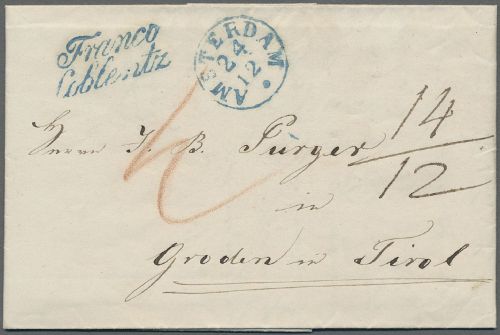 Franco
Coblentz
AMSTERDAM
24
12
14
12
Herrn J. B. Purger
in
Groden in Tirol